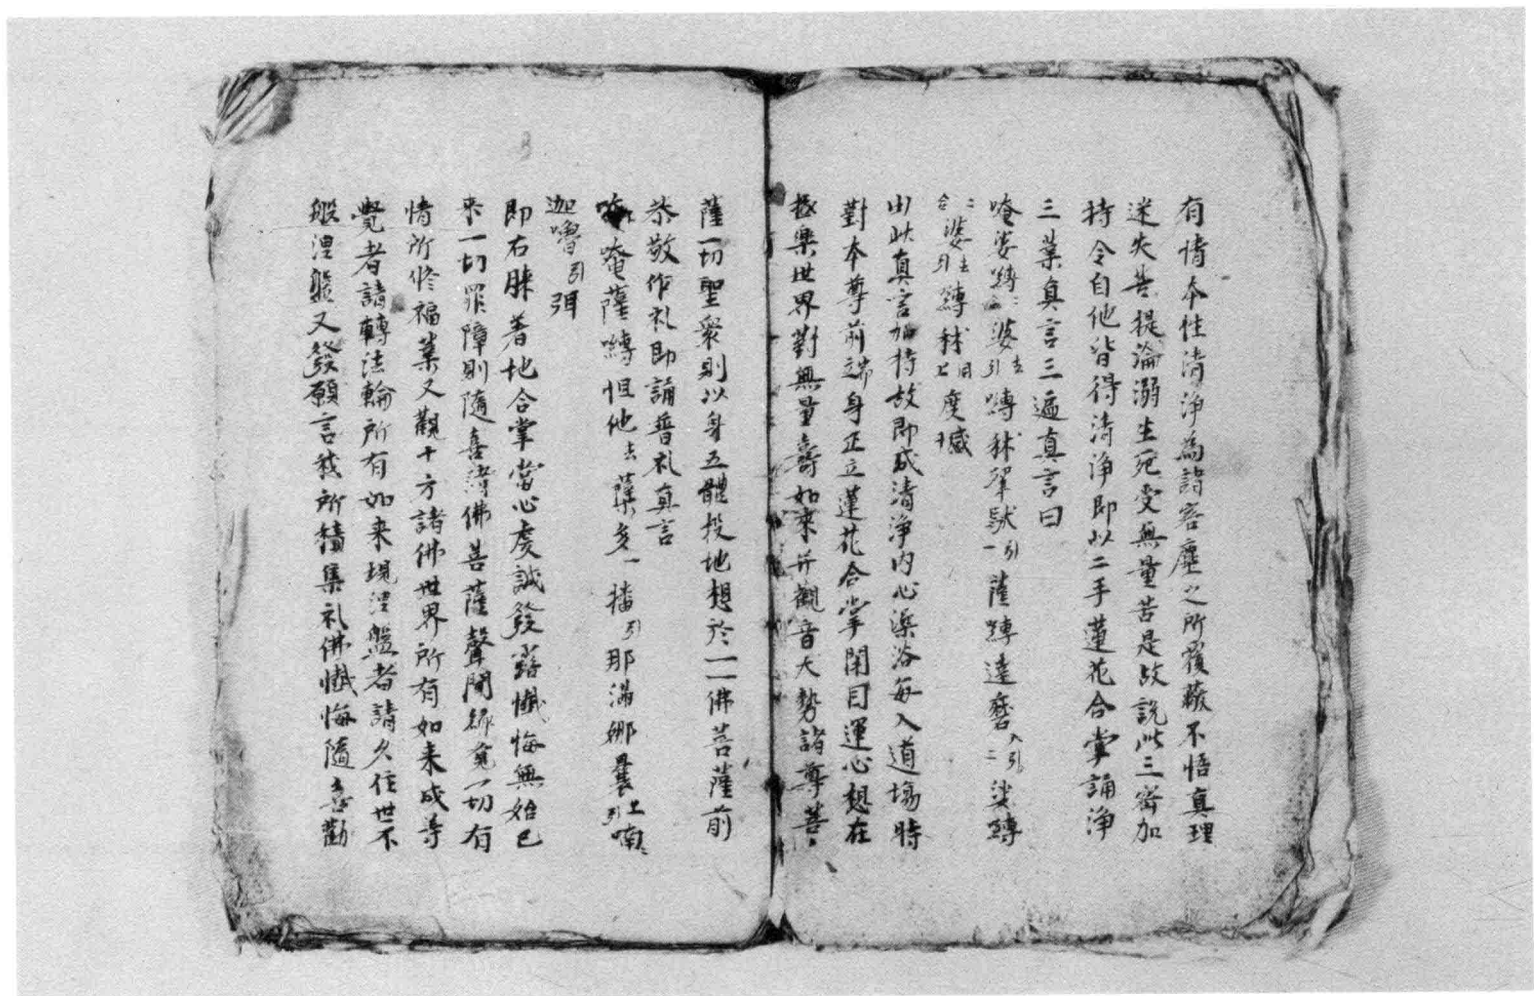 有情本性清淨為諸客塵之所覆蔽不悟真理
迷失菩提淪溺生死受無量苦是故說此三密加
持令自他皆得清淨即以二手蓮花合掌誦淨
三業真言三遍真言曰
唵娑嚩二合婆去引嚩秫馱引一薩嚩達磨入引二娑嚩
二合婆去引嚩秫同上度憾
由此真言加持故即成清淨內心澡浴每入道場時
對本尊前端身正立蓮花合掌閉目運心想在
極樂世界對無量壽如來并觀音大勢諸尊菩
薩一切聖眾則以身五體投地想於一一佛菩薩前
恭敬作礼即誦普礼真言
唵薩嚩怛他去蘖多一播引那滿娜曩上引喃
迦嚕引弭
即右膝著地合掌當心虔誠發露懺悔無始已
來一切罪障則隨喜諸佛菩薩聲聞緣覺一切有
情所修福業又觀十方諸佛世界所有如来成等
覺者請轉法輪所有如来現涅盤者請久住世不
般涅盤又發願言我所積集礼佛懺悔隨喜勸